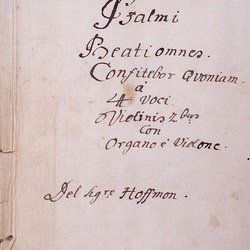 Psalmi
Beati omnes.
Confitebor Quoniam.
a
4 Voci
Violinis 2bus
Con
Organo è Violone.
Del Sigre Hoffmon.